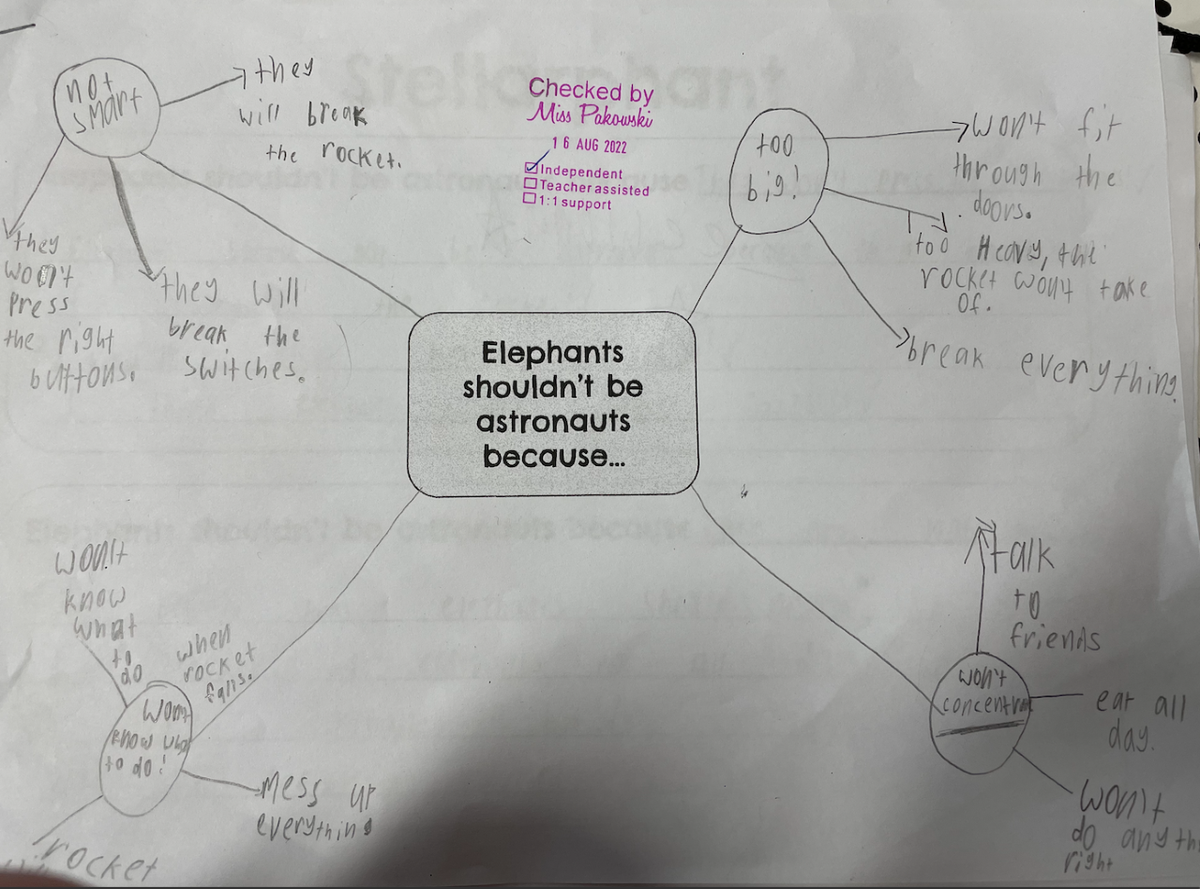 Stellarphant
Checked by
Miss Pakowski
16 AUG 2022
Independent
Teacher assisted
1:1 support
not
smart
they
will break
the rocket.
they
won't
press
the right
buttons.
they will
break the
switches.
too
big!
won't fit
through the
doors.
too Heavy, the
rocket won't take
of.
break everything.
Elephants
shouldn't be
astronauts
because...
won't
know
what
to
do
when
rocket
falls.
Wont
know
to do!
mess up
everything
rocket
won't
talk
to
friends
eat all
day.
won't
do
right
Elephants shouldn't be astronauts because